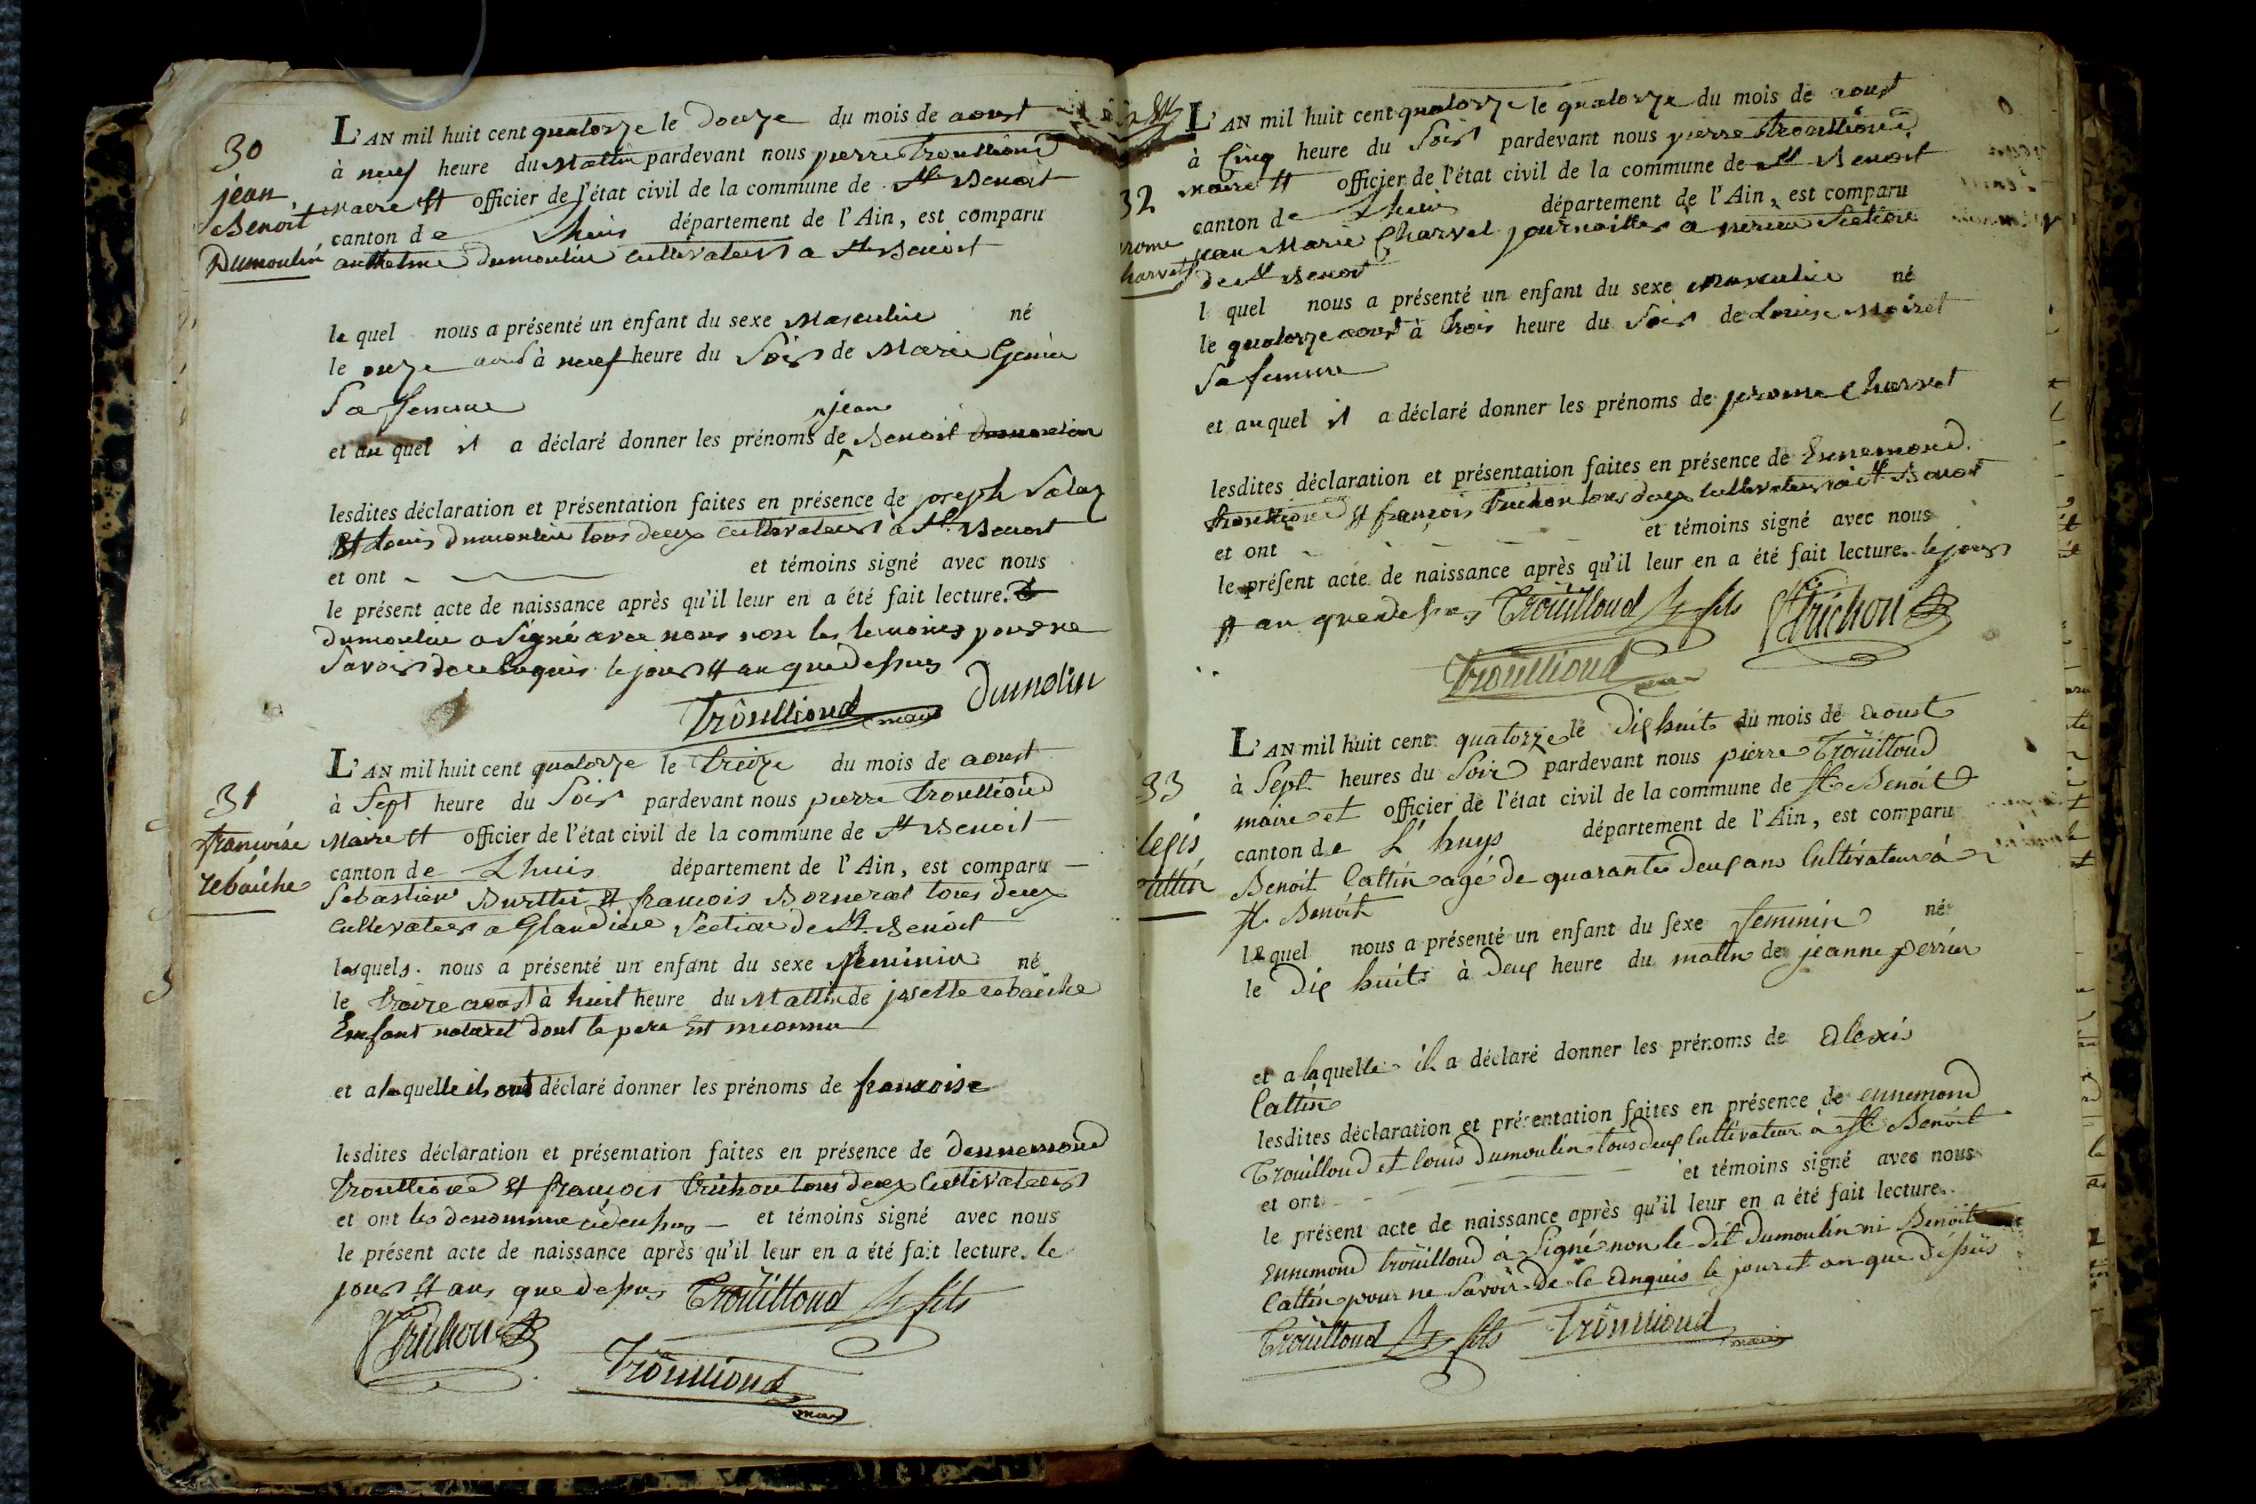 30
jean
Benoit
Dumoulin
L'AN mil huit cent quatorze le douze du mois de aoust
à neuf heure du Mattin pardevant nous pierre Troullioud
Maire et officier de l'état civil de la commune de St Benoit
canton de Lhuis département de l'Ain, est comparu
anthelme dumoulin cultivateur a St Benoit
le quel nous a présenté un enfant du sexe Masculin né
le onze aoust à neuf heure du Soir de Marie Genin
Sa femme
jean
et au quel il a déclaré donner les prénoms de Benoit dumoulin
lesdites déclaration et présentation faites en présence de joseph
Et Louis dumoulin tous deux cultivateurs à St Benoit
et ont et témoins signé avec nous
le présent acte de naissance après qu'il leur en a été fait lecture.
dumoulin a Signé avec nous non les temoins pour ne
Savoir de ce Enquis le jour et an que dessus
Troullioud maire dumolin
31
françoise
rebaiche
L'AN mil huit cent quatorze le treize du mois de aoust
à Sept heure du Soir pardevant nous pierre Troullioud
Maire et officier de l'état civil de la commune de St Benoit
canton de Lhuis département de l'Ain, est comparu
Sebastien Burtin et françois Bornerat tous deux
cultivateur a Glandieu Section de St Benoit
lesquels nous a présenté un enfant du sexe feminin né
le treize aoust à huit heure du Mattin de josette rebaiche
Enfant naturel dont le pere Est inconnu
et a laquelle ils ont déclaré donner les prénoms de francoise
lesdites déclaration et présentation faites en présence de dennemond
troullioud et françois trichon tous deux cultivateurs
et ont les denommé cidessus et témoins signé avec nous
le présent acte de naissance après qu'il leur en a été fait lecture. le
jour et ans que dessus Troüilloud fils
Trichon
Troullioud maire
32
rome
harvet
L'AN mil huit cent quatorze le quatorze du mois de aoust
à Cinq heure du Soir pardevant nous pierre Troullioud
Maire et officier de l'état civil de la commune de St Benoit
canton de Lhuis département de l'Ain, est comparu
jean Marie Charvet journaillier à Section
de St Benoit
l quel nous a présenté un enfant du sexe Masculin né
le quatorze aoust à trois heure du Soir de Louise Moiret
Sa femme
et au quel il a déclaré donner les prénoms de jerome Charvet
lesdites déclaration et présentation faites en présence de Ennemond
troullioud et françois trichon tous deux cultivateurs à St Benoit
et ont et témoins signé avec nous
le présent acte de naissance après qu'il leur en a été fait lecture. le jour
et an que dessus Troüilloud fils Trichon
Troullioud maire
33
lexis
attin
L'AN mil huit cent quatorze le dix huit du mois de aoust
à Sept heures du Soir pardevant nous pierre Troüilloud
maire et officier de l'état civil de la commune de St Benoit
canton de L'huys département de l'Ain, est comparu
Benoit Cattin agé de quarante deux ans Cultivateur à
St Benoit
lequel nous a présenté un enfant du sexe feminin né
le dix huit à deux heure du matin de jeanne perrier
et a laquelle il a déclaré donner les prénoms de Alexis
Cattin
lesdites déclaration et présentation faites en présence de ennemond
Troüilloud et Louis Dumoulin tous deux Cultivateur à St Benoit
et ont et témoins signé avec nous
le présent acte de naissance après qu'il leur en a été fait lecture.
Ennemond troüilloud à Signé non le dit Dumoulin ni Benoit
Cattin pour ne Savoir de ce Enquis le jour et an que dessus
Troüilloud fils Troullioud maire